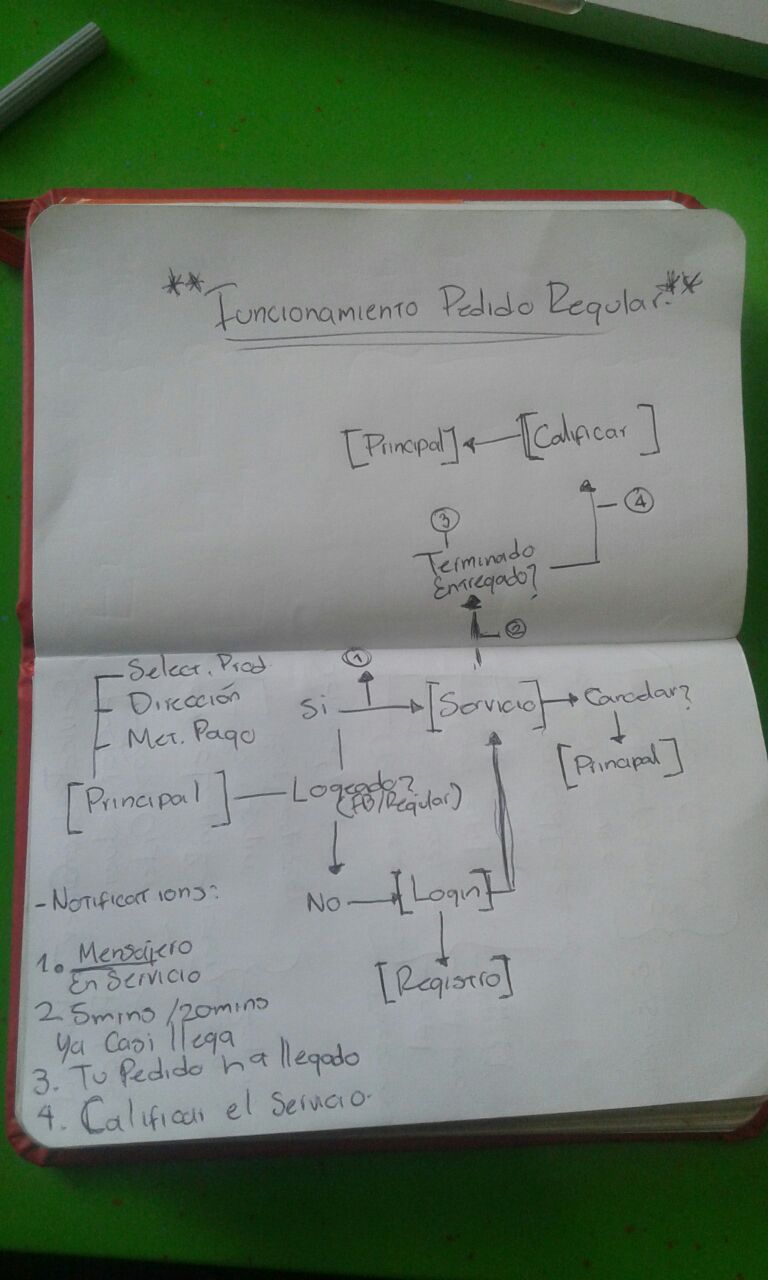 **Funcionamiento Pedido Regular.**
[Principal] [Calificar]
4
3
Terminado
Entregado?
2
1
Select. Prod.
Dirección
Met. Pago
Si [Servicio] Cancelar?
[Principal]
[Principal] Logeado?
(FB/Regular)
No [Login]
[Registro]
-Notifications:
1. Mensajero
En Servicio
2. 5mins /20mins
Ya Casi llega
3. Tu Pedido ha llegado
4. Calificar el Servicio.